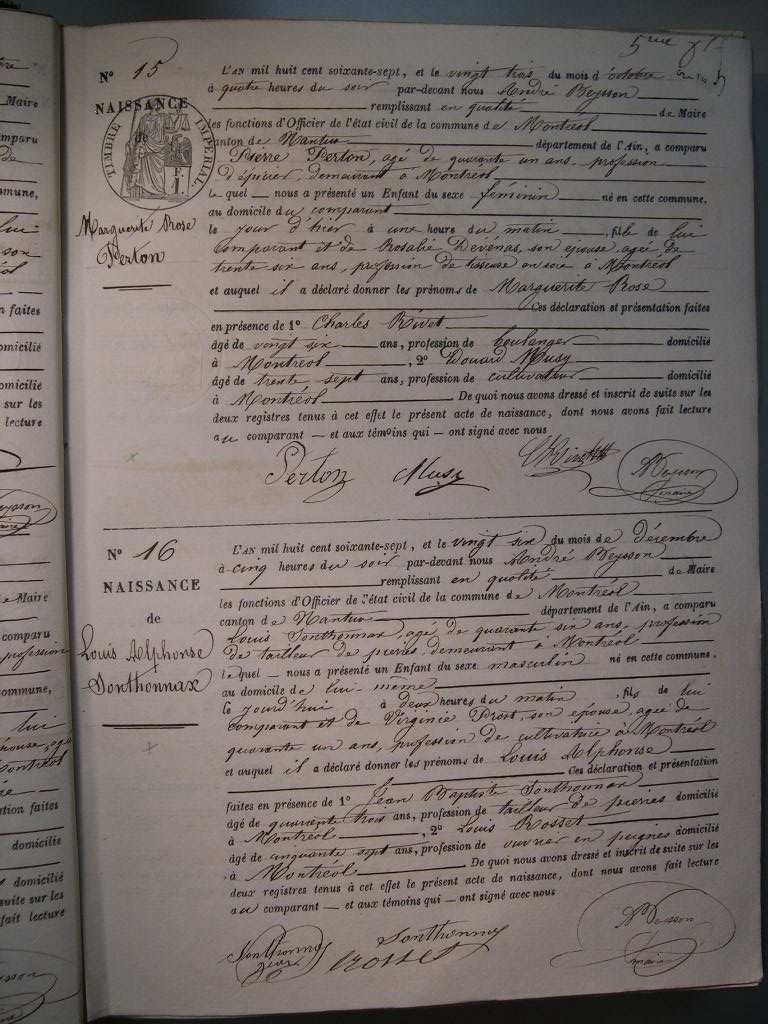 5me
N° 15
NAISSANCE
de
TIMBRE IMPÉRIAL
F
1
Marguerite Rose
Perton
L'AN mil huit cent soixante-sept, et le vingt trois du mois d'octobre
à quatre heures du soir par-devant nous André Beysson
remplissant en qualité de Maire
les fonctions d'Officier de l'état civil de la commune de Montréol
canton de Nantua département de l'Ain, a comparu
Pierre Perton, agé de quarante un ans, profession
d'épicier, demeurant à Montréol
le quel — nous a présenté un Enfant du sexe féminin né en cette commune,
au domicile du comparant
le jour d'hier à une heure du matin, fille de lui
comparant et de Rosalie Devenas, son épouse, agée de
trente six ans, profession de tisseuse en soie à Montréol
et auquel il a déclaré donner les prénoms de Marguerite Rose
Ces déclaration et présentation faites
en présence de 1° Charles Rivet
âgé de vingt six ans, profession de boulanger domicilié
à Montréol, 2° Edouard Musy
âgé de trente sept ans, profession de cultivateur domicilié
à Montréol De quoi nous avons dressé et inscrit de suite sur les
deux registres tenus à cet effet le présent acte de naissance, dont nous avons fait lecture
au comparant — et aux témoins qui — ont signé avec nous
Perton Musy Ch Rivet
maire
N° 16
NAISSANCE
de
Louis Alphonse
Sonthonnax
L'AN mil huit cent soixante-sept, et le vingt six du mois de décembre
à cinq heures du soir par-devant nous André Beysson
remplissant en qualité de Maire
les fonctions d'Officier de l'état civil de la commune de Montréol
canton de Nantua département de l'Ain, a comparu
Louis Sonthonnax, agé de quarante six ans, profession
de tailleur de pierres, demeurant à Montréol
le quel — nous a présenté un Enfant du sexe masculin né en cette commune,
au domicile de lui-même
le jourd'hui à deux heures du matin, fils de lui
comparant et de Virginie Prost, son épouse, agée de
quarante un ans, profession de cultivatrice à Montréol
et auquel il a déclaré donner les prénoms de Louis Alphonse
Ces déclaration et présentation
faites en présence de 1° Jean Baptiste Sonthonnax
âgé de quarante trois ans, profession de tailleur de pierres domicilié
à Montréol, 2° Louis Rosset
âgé de cinquante sept ans, profession de ouvrier en peignes domicilié
à Montréol De quoi nous avons dressé et inscrit de suite sur les
deux registres tenus à cet effet le présent acte de naissance, dont nous avons fait lecture
au comparant — et aux témoins qui — ont signé avec nous
Sonthonnax Rosset Sonthonnax Beysson
maire